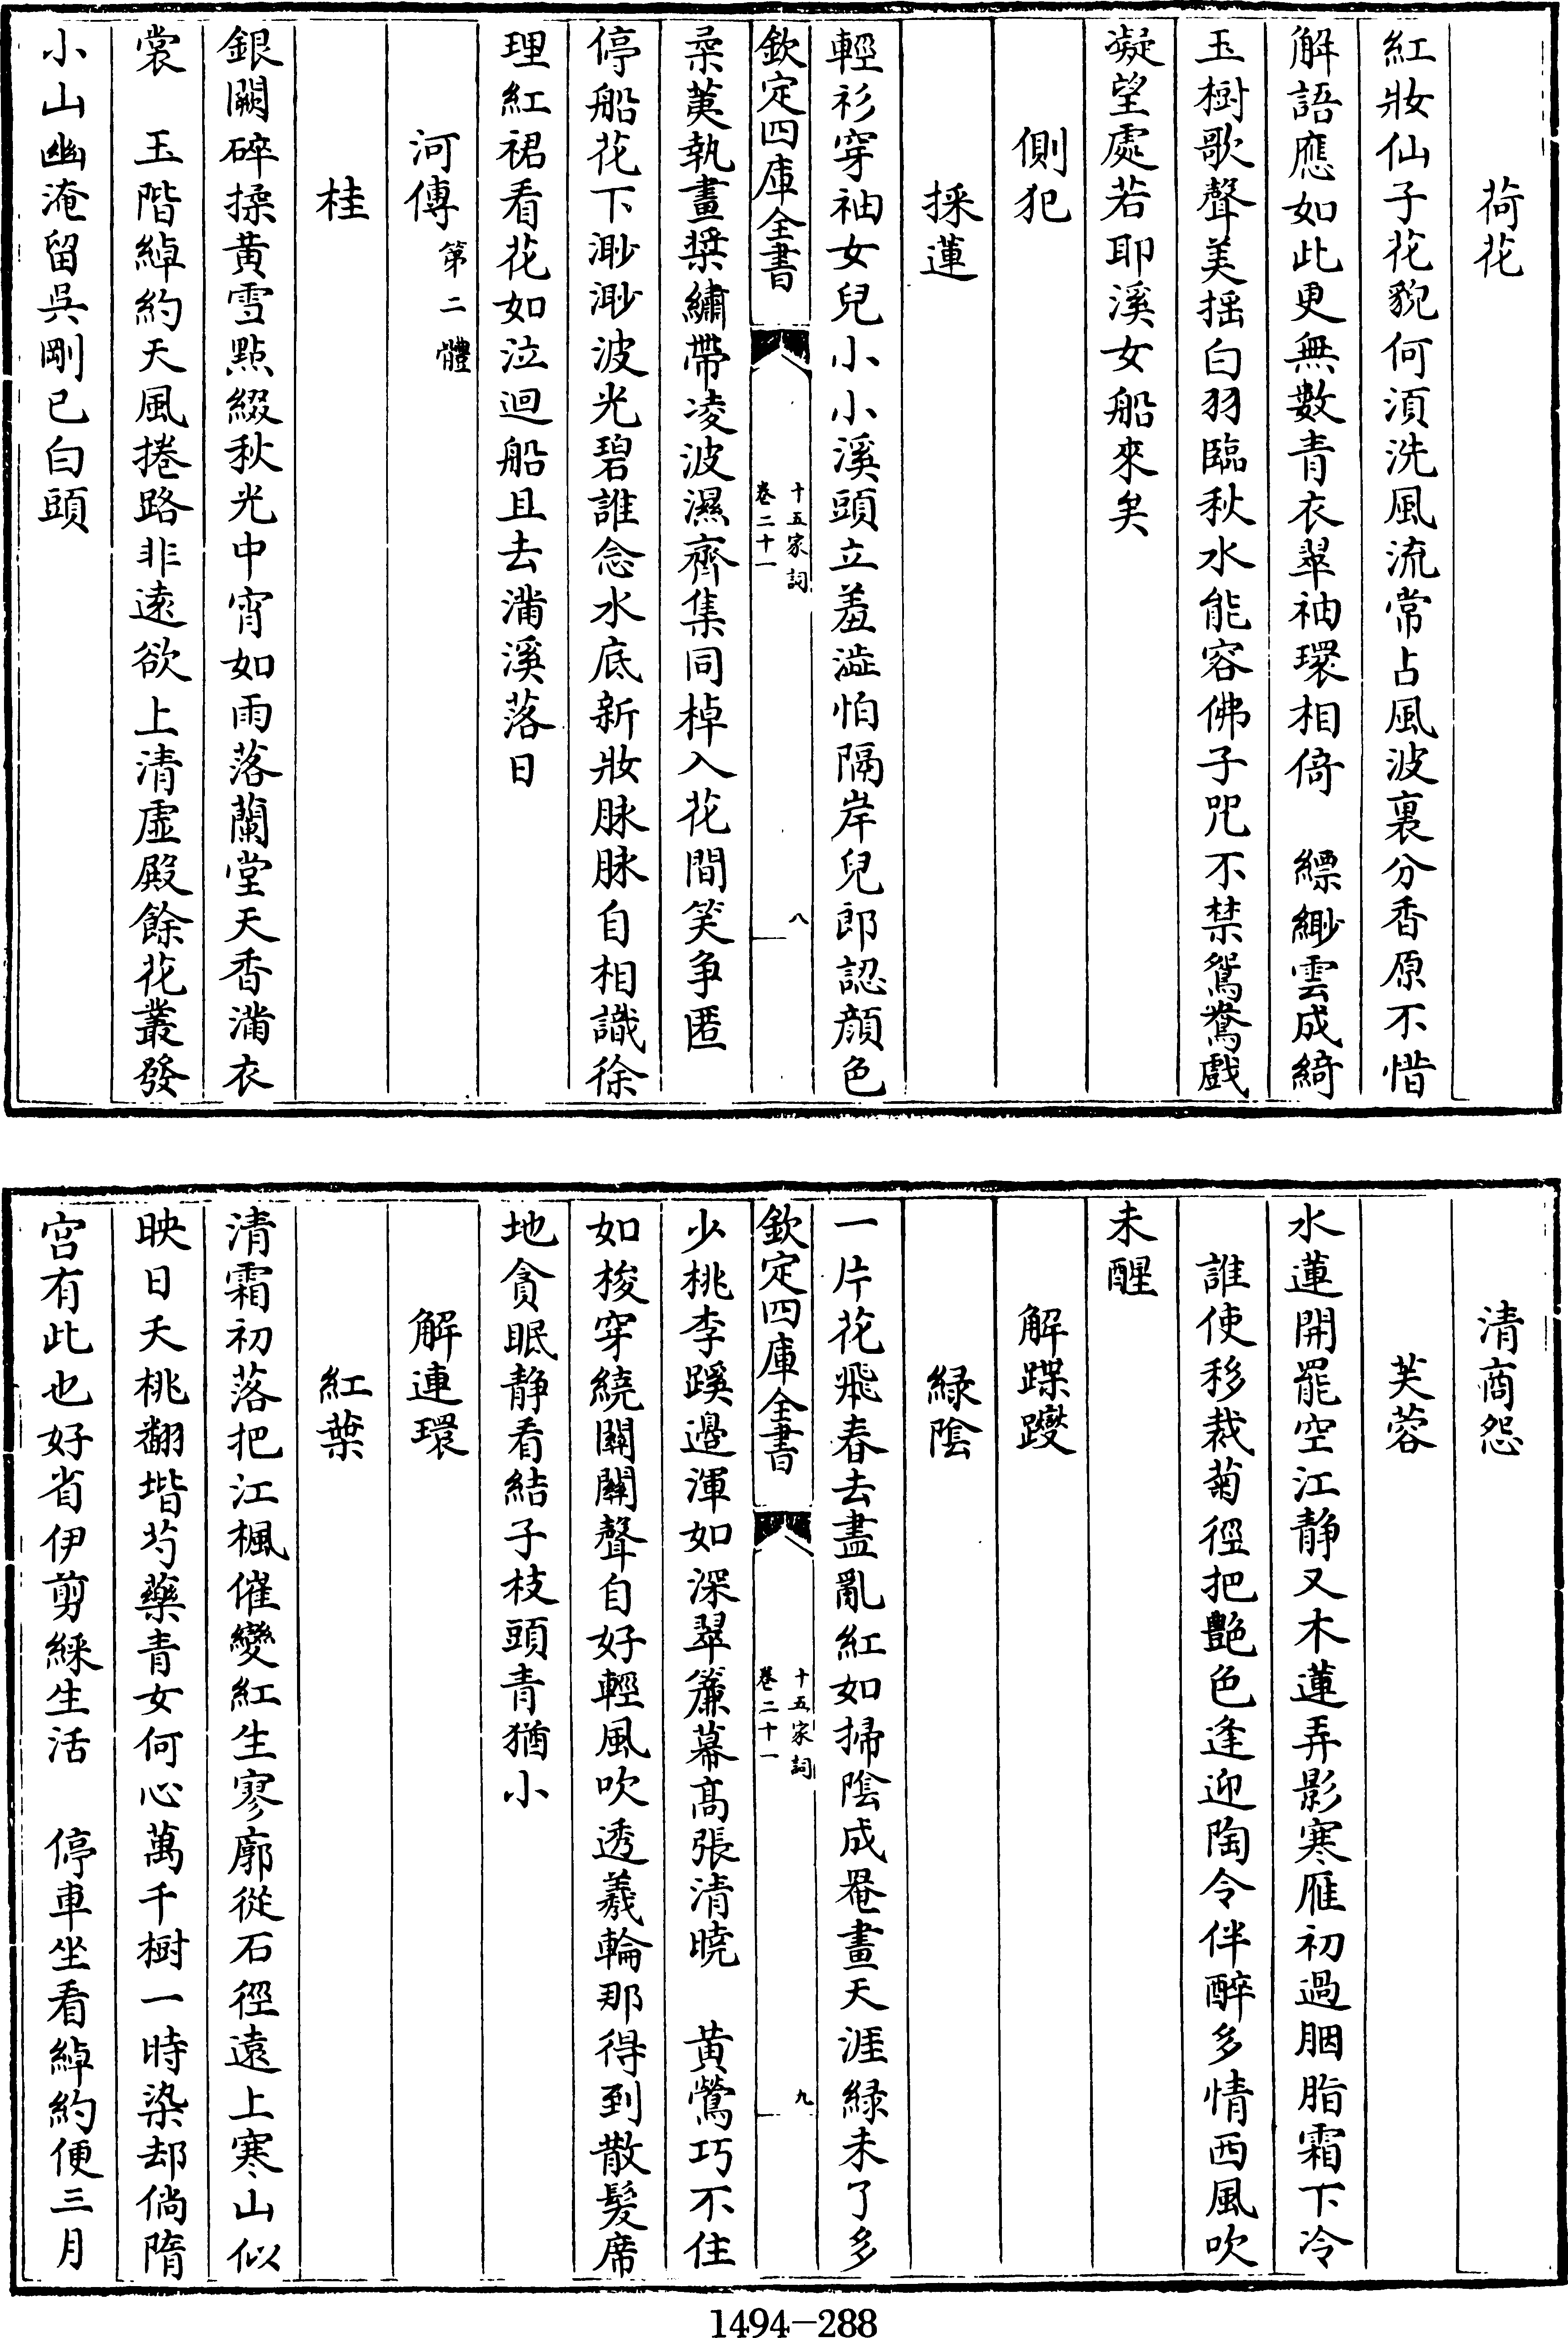 荷花
紅妝仙子花貌何須洗風流常占風波裏分香原不惜
解語應如此更無數青衣翠袖環相倚　縹緲雲成綺
玉樹歌聲美揺白羽臨秋水能容佛子咒不禁鴛鴦戲
凝望處若耶溪女船來矣
側犯
採蓮
輕衫穿袖女兒小小溪頭立羞澁怕隔岸兒郎認顔色
欽定四庫全書
十五家詞
卷二十一
八
柔荑執畫槳繡帶凌波濕齊集同棹入花間笑争匿
停船花下渺渺波光碧誰念水底新妝脉脉自相識徐
理紅裙看花如泣迴船且去滿溪落日
河傳第二體
桂
銀闕碎揉黄雪點綴秋光中宵如雨落蘭堂天香滿衣
裳　玉階綽約天風捲路非遠欲上清虚殿餘花叢發
小山幽淹留吳剛已白頭
清商怨
芙蓉
水蓮開罷空江静又木蓮弄影寒雁初過胭脂霜下冷
誰使移裁菊徑把艶色逢迎陶令伴醉多情西風吹
未醒
解蹀躞
緑陰
一片花飛春去盡亂紅如掃陰成罨畫天涯緑未了多
欽定四庫全書
十五家詞
卷二十一
九
少桃李蹊邉渾如深翠簾幕髙張清曉　黄鶯巧不住
如梭穿繞關關聲自好輕風吹透羲輪那得到散髮席
地貪眠静看結子枝頭青猶小
解連環
紅葉
清霜初落把江楓催變紅生寥廓從石徑遠上寒山似
映日夭桃翻堦芍藥青女何心萬千樹一時染却倘隋
宫有此也好省伊剪綵生活　停車坐看綽約便三月
1494-288